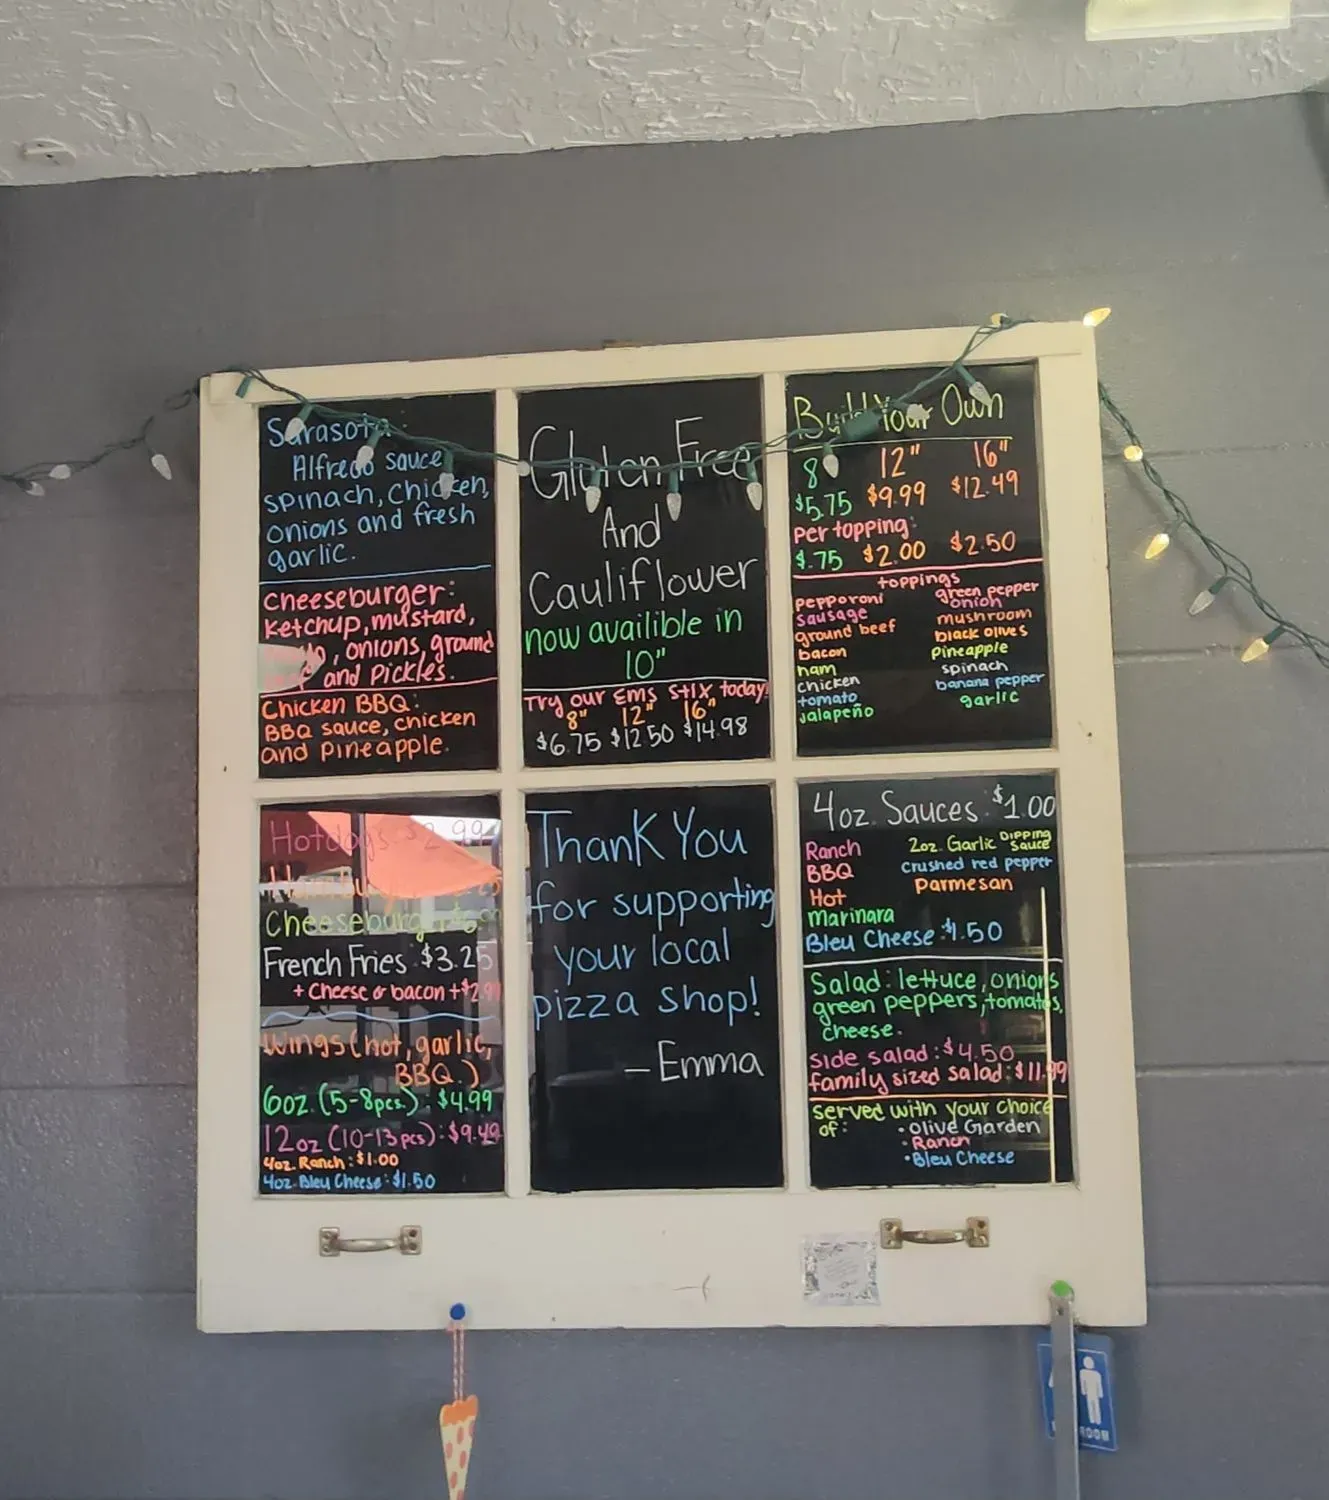 Sarasota:
Alfredo sauce
spinach, chicken,
onions and fresh
garlic.
Cheeseburger:
Ketchup, mustard,
, onions, ground
and Pickles.
Chicken BBQ:
BBQ sauce, chicken
and pineapple.
Gluten Free
And
Cauliflower
now availible in
10"
Try our Ems Stix today!
8" 12" 16"
$6.75 $12.50 $14.98
Build Your Own
8" 12" 16"
$5.75 $9.99 $12.49
per topping:
$.75 $2.00 $2.50
toppings
pepporoni
sausage
ground beef
bacon
ham
chicken
tomato
jalapeño
green pepper
onion
mushroom
black olives
pineapple
spinach
banana pepper
garlic
Hotdogs: $2.99
Cheeseburger
French Fries: $3.25
+ Cheese or bacon + $2.99
Wings (hot, garlic,
BBQ.)
6oz. (5-8pcs.): $4.99
12oz (10-13pcs): $9.49
4oz. Ranch: $1.00
4oz. Bleu Cheese: $1.50
Thank You
for supporting
your local
pizza shop!
- Emma
4oz. Sauces: $1.00
Ranch
BBQ
Hot
Marinara
Bleu Cheese: $1.50
2oz. Garlic Dipping Sauce
crushed red pepper
Parmesan
Salad: lettuce, onions
green peppers, tomatos,
cheese.
side salad: $4.50
family sized salad: $11.99
served with your choice
of:
• Olive Garden
• Ranch
• Bleu Cheese